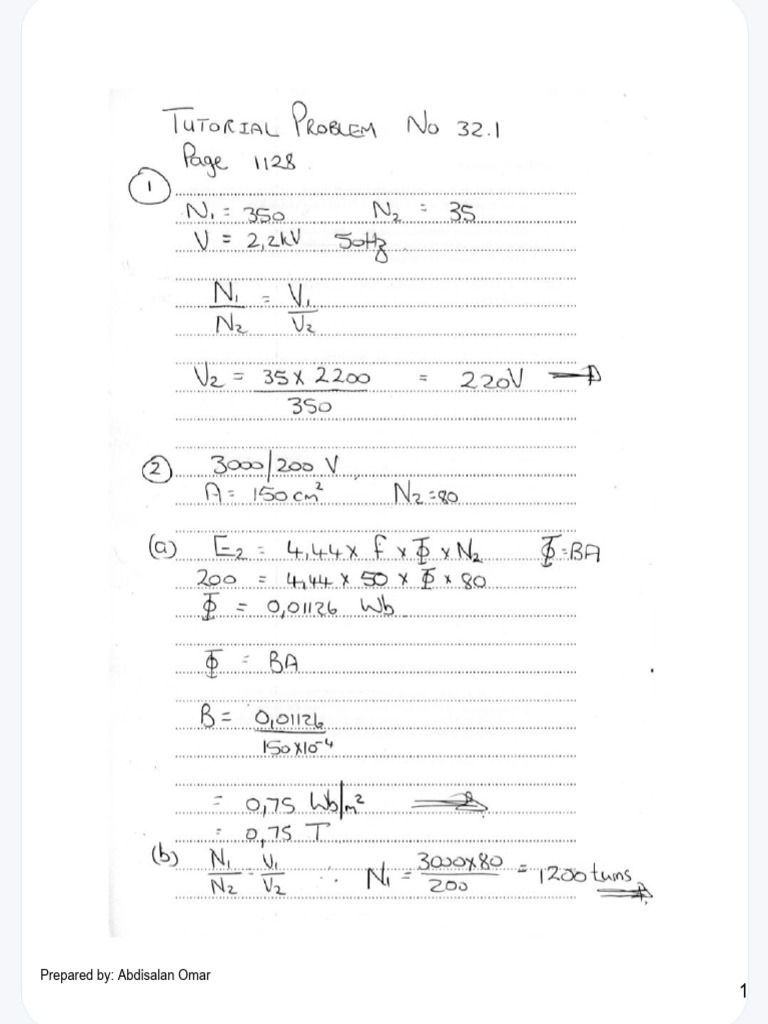 TUTORIAL PROBLEM No 32.1
Page 1128
1
N₁ = 350 N₂ = 35
V = 2,2kV 50Hz
N₁/N₂ = V₁/V₂
V₂ = 35 x 2200 / 350 = 220V
2 3000/200 V
A = 150 cm² N₂ = 80
(a) E₂ = 4,44 x f x Φ x N₂ Φ = BA
200 = 4,44 x 50 x Φ x 80
Φ = 0,01126 Wb
Φ = BA
B = 0,01126 / 150 x 10⁻⁴
= 0,75 Wb/m²
= 0,75 T
(b) N₁/N₂ = V₁/V₂ ∴ N₁ = 3000 x 80 / 200 = 1200 turns
Prepared by: Abdisalan Omar
1